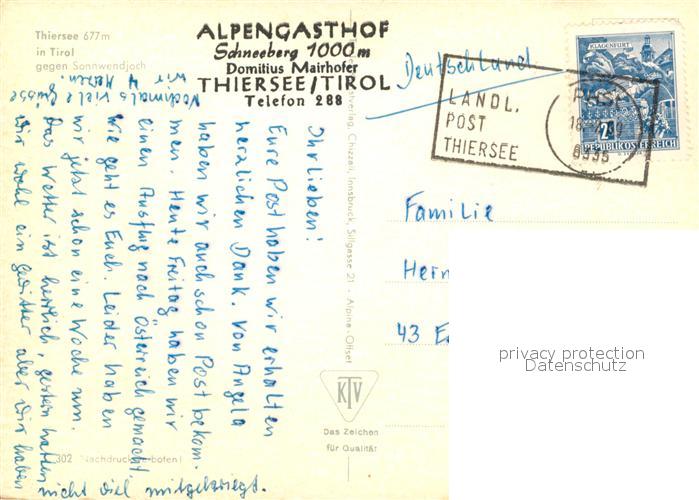 Thiersee 677m
in Tirol
gegen Sonnwendjoch
ALPENGASTHOF
Schneeberg 1000m
Domitius Mairhofer
THIERSEE/TIROL
Telefon 288
Deutschland
KLAGENFURT
REPUBLIK ÖSTERREICH
LANDL.
POST
THIERSEE
Familie
43
privacy protection
Datenschutz
Ihr lieben!
Eure Post haben wir erhalten
herzlichen Dank. Von Angela
haben wir auch schon Post bekom.
men. Heute Freitag haben wir
einen Ausflug nach Österreich gemacht
Wie geht es Euch. Leider haben
wir jetzt schon eine Woche rum.
Das Wetter ist herrlich, gestern hatten
wir wohl ein gewitter aber wir haben
nicht viel mitgekriegt.
Nochmals viele Grüsse
wir 4 Herzen.
Chizzali, Innsbruck, Sillgasse 21 - Alpina-Offset
KTV
Das Zeichen
für Qualität
302 Nachdruck verboten!